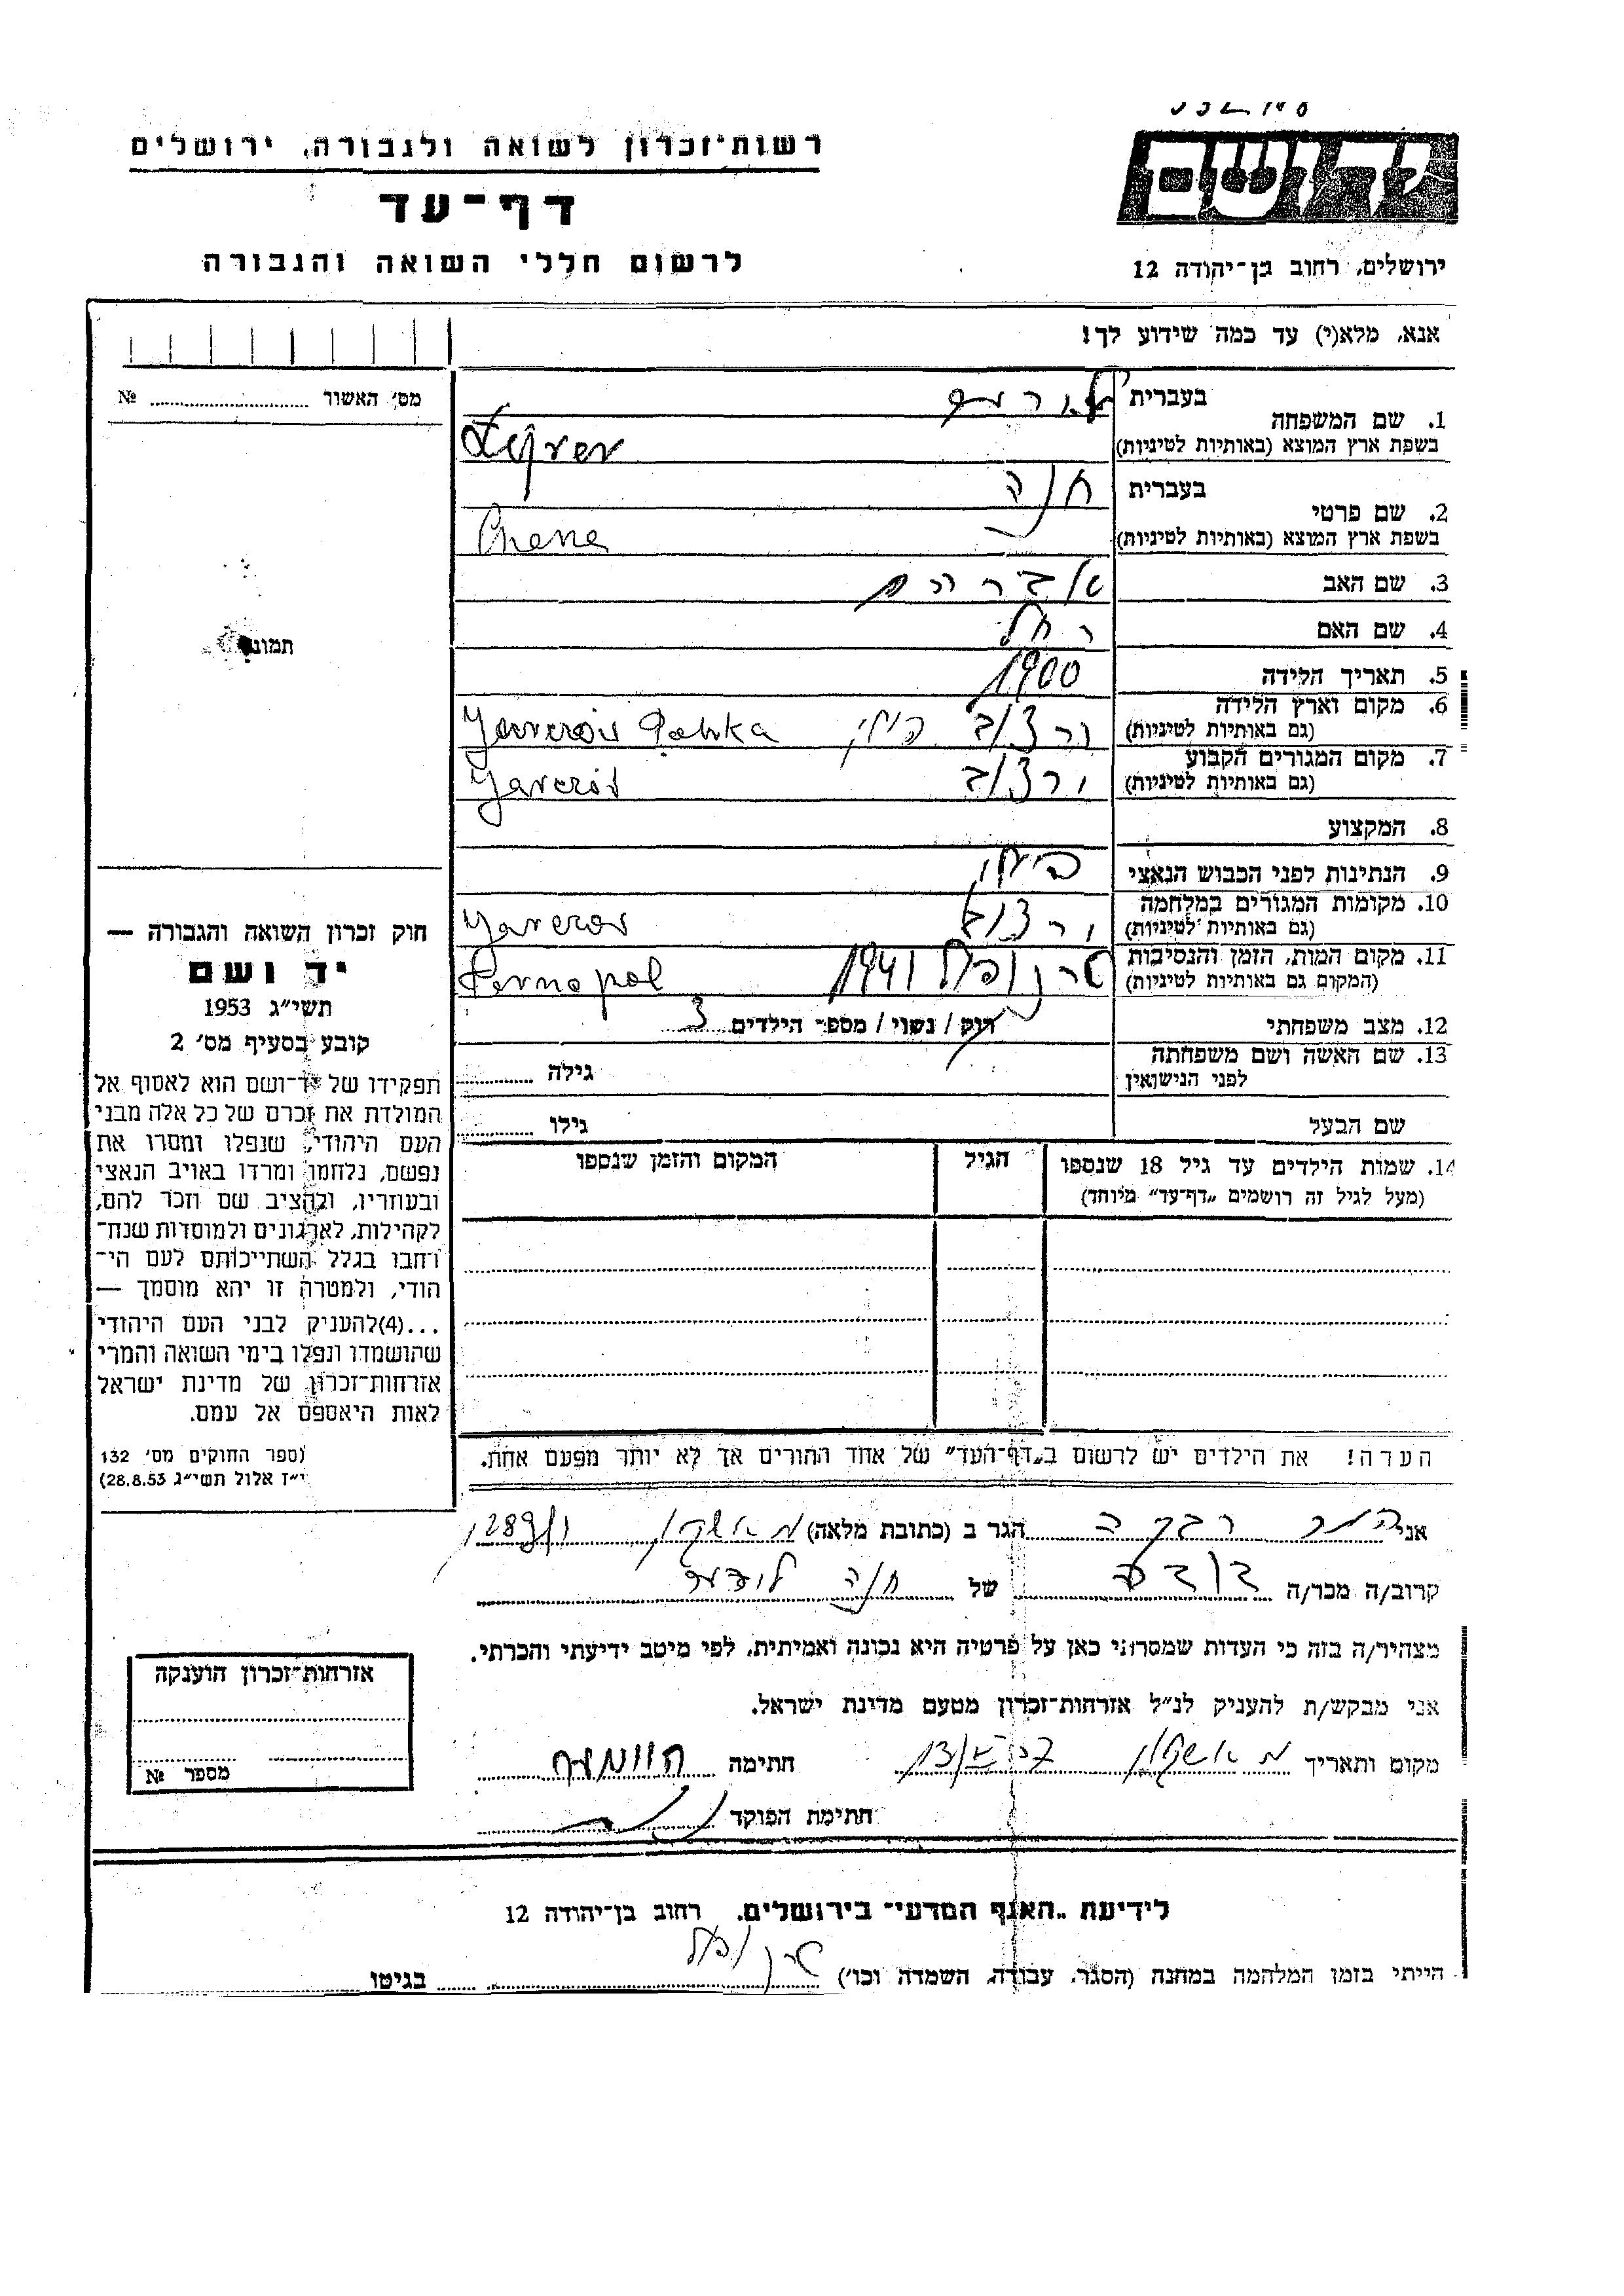 רשות־זכרון לשואה ולגבורה, ירושלים
דף־עד
לרשום חללי השואה והגבורה
יד ושם
ירושלים, רחוב בן־יהודה 12
אנא, מלא(י) עד כמה שידוע לך!
מס׳ האשור № 
תמונה
1. שם המשפחה
בעברית
בשפת ארץ המוצא (באותיות לטיניות)
2. שם פרטי
בעברית חנה
בשפת ארץ המוצא (באותיות לטיניות) Chana
3. שם האב אברהם
4. שם האם רחל
5. תאריך הלידה 1900
6. מקום וארץ הלידה
(גם באותיות לטיניות) פולין Polska
7. מקום המגורים הקבוע
(גם באותיות לטיניות)
8. המקצוע
9. הנתינות לפני הכבוש הנאצי פולין
10. מקומות המגורים במלחמה
(גם באותיות לטיניות)
11. מקום המות, הזמן והנסיבות
(המקום גם באותיות לטיניות) טרנופול 1941 Ternopol
12. מצב משפחתי רוק / נשוי / מספר הילדים 3
13. שם האשה ושם משפחתה
לפני הנישואין גילה
שם הבעל גילו
14. שמות הילדים עד גיל 18 שנספו הגיל המקום והזמן שנספו
(מעל לגיל זה רושמים „דף־עד״ מיוחד)
הערה! את הילדים יש לרשום ב„דף־העד״ של אחד ההורים אך לא יותר מפעם אחת.
חוק זכרון השואה והגבורה —
יד ושם
תשי״ג 1953
קובע בסעיף מס׳ 2
תפקידו של יד־ושם הוא לאסוף אל
המולדת את זכרם של כל אלה מבני
העם היהודי, שנפלו ומסרו את
נפשם, נלחמו ומרדו באויב הנאצי
ובעוזריו, ולהציב שם וזכר להם,
לקהילות, לארגונים ולמוסדות שנח־
רחבו בגלל השתייכותם לעם הי־
הודי, ולמטרה זו יהא מוסמך —
...(4)להעניק לבני העם היהודי
שהושמדו ונפלו בימי השואה והמרי
אזרחות־זכרון של מדינת ישראל
לאות היאספם אל עמם.
(ספר החוקים מס׳ 132
י״ז אלול תשי״ג 28.8.53)
אני רבקה הגר ב (כתובת מלאה) אשקלון
קרוב/ה מכר/ה של חנה
מצהיר/ה בזה כי העדות שמסרתי כאן על פרטיה היא נכונה ואמיתית, לפי מיטב ידיעתי והכרתי.
אני מבקש/ת להעניק לנ״ל אזרחות־זכרון מטעם מדינת ישראל.
מקום ותאריך אשקלון חתימה
חתימת הפוקד
אזרחות־זכרון הוענקה
מספר №
לידיעת „האגף המדעי״ בירושלים, רחוב בן־יהודה 12
הייתי בזמן המלחמה במחנה (הסגר, עבודה, השמדה וכו׳) טרנופול בגיטו